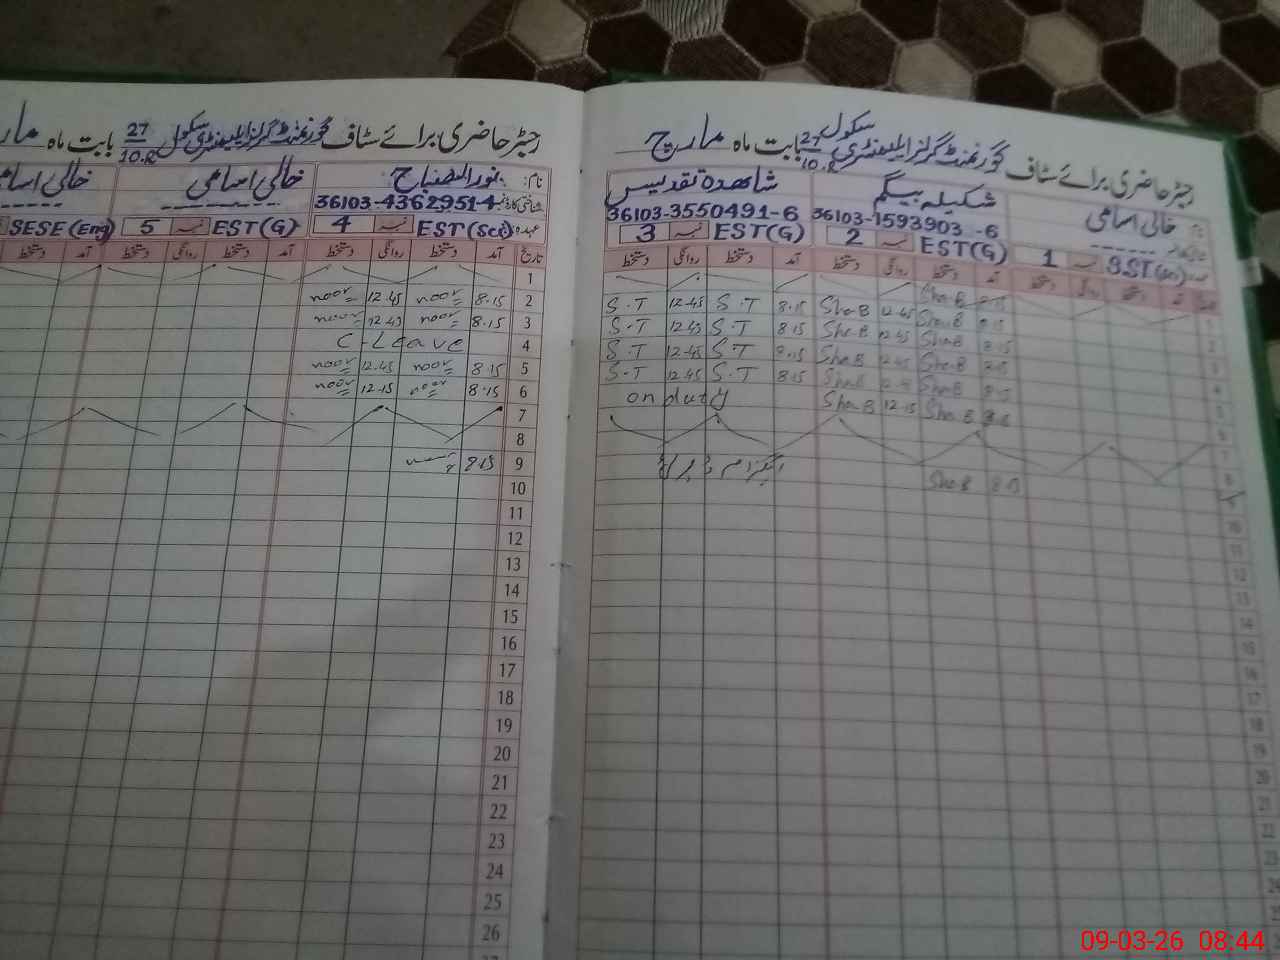 رجسٹر حاضری برائے سٹاف گورنمنٹ گرلز ایلیمنٹری سکول 27/10.R بابت ماہ مارچ
نام: خالی اسامی
شکیلہ بیگم
شاھدہ تقدیس
36103-1593903-6
36103-3550491-6
1 نمبر
EST(G) نمبر 2
EST(G) نمبر 3
تاریخ آمد دستخط روانگی دستخط آمد دستخط روانگی دستخط آمد دستخط روانگی دستخط
8.15 Sha.B 12.45 Sha.B 8.15 S.T 12.45 S.T
8.15 Sha.B 12.45 Sha.B 8.15 S.T 12.45 S.T
8.15 Sha.B 12.45 Sha.B 8.15 S.T 12.45 S.T
8.15 Sha.B 12.45 Sha.B 8.15 S.T 12.45 S.T
Sha.B 12.15 Sha.B on duty
8.15 Sha.B
رجسٹر حاضری برائے سٹاف گورنمنٹ گرلز ایلیمنٹری سکول 27/10.R بابت ماہ
نام: نور المصباح
خالی اسامی
خالی اسامی
شناختی کارڈ نمبر: 36103-4362951-4
عہدہ: EST(Sci) نمبر 4
EST(G) نمبر 5
SESE(Eng)
تاریخ آمد دستخط روانگی دستخط آمد دستخط روانگی دستخط آمد دستخط
1
2 8.15 noor 12.45 noor
3 8.15 noor 12.45 noor
4 C-Leave
5 8.15 noor 12.45 noor
6 8.15 noor 12.15 noor
7
8
9 8.15
10
11
12
13
14
15
16
17
18
19
20
21
22
23
24
25
26
09-03-26 08:44